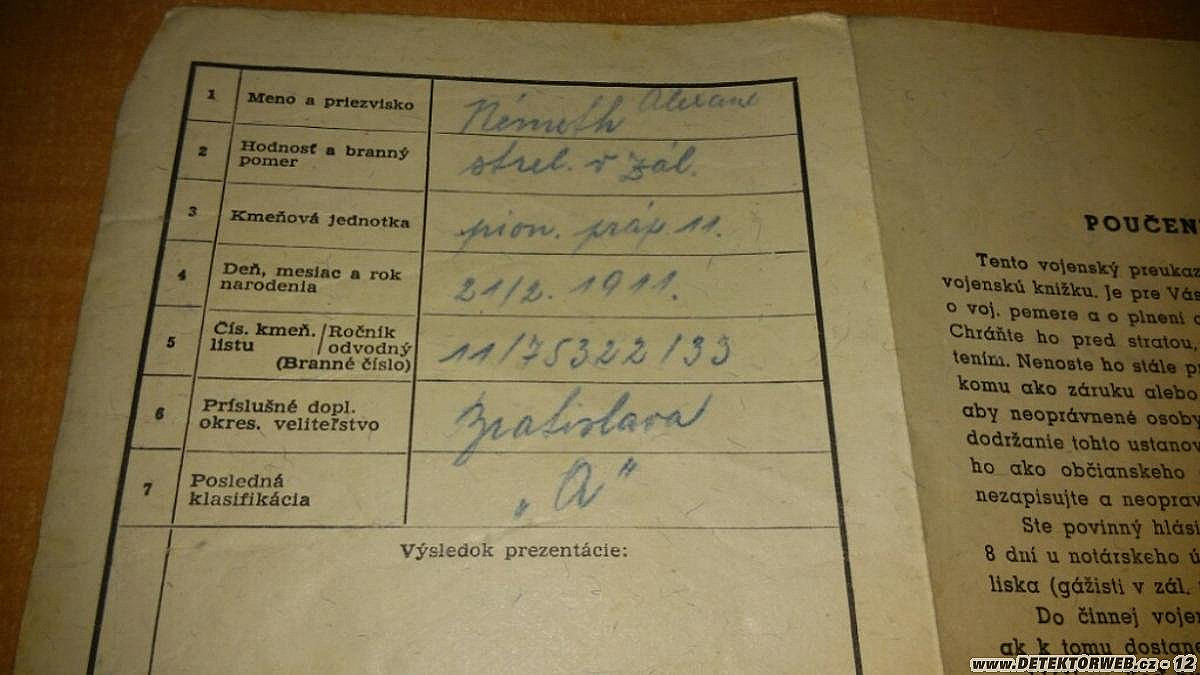 1 Meno a priezvisko Németh
2 Hodnosť a branný pomer strel. v zál.
3 Kmeňová jednotka pion. práp 11.
4 Deň, mesiac a rok narodenia 21/2. 1911.
5 Čís. kmeň. listu / Ročník odvodný (Branné číslo) 11/75322/33
6 Príslušné dopl. okres. veliteľstvo Bratislava
7 Posledná klasifikácia „A"
Výsledok prezentácie:
POUČEN
Tento vojenský preukaz
vojenskú knižku. Je pre Vás
o voj. pomere a o plnení
Chráňte ho pred stratou,
tením. Nenoste ho stále
komu ako záruku alebo
aby neoprávnené osoby
dodržanie tohto ustanov
ho ako občianskeho
nezapisujte a neoprav
Ste povinný hlási
8 dní u notárskeho ú
liska (gážisti v zál.
Do činnej voje
ak k tomu dostane
www.DETEKTORWEB.cz - 12